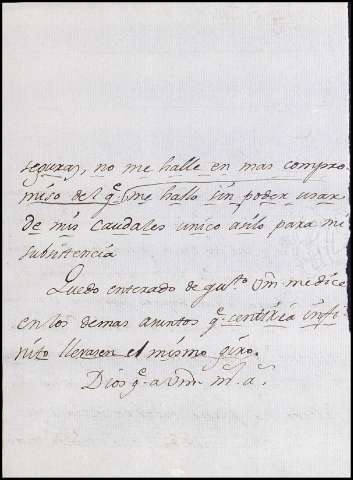 seguras, no me halle en mas compro-
miso del q.e me hallo sin poder usar
de mis caudales unico asilo para mi
subsistencia
Quedo enterado de quto. Vm me dice
en los demas asuntos q.e centiria infi-
nito llevasen el mismo giro.
Dios g.e a Vm. m.s a.s